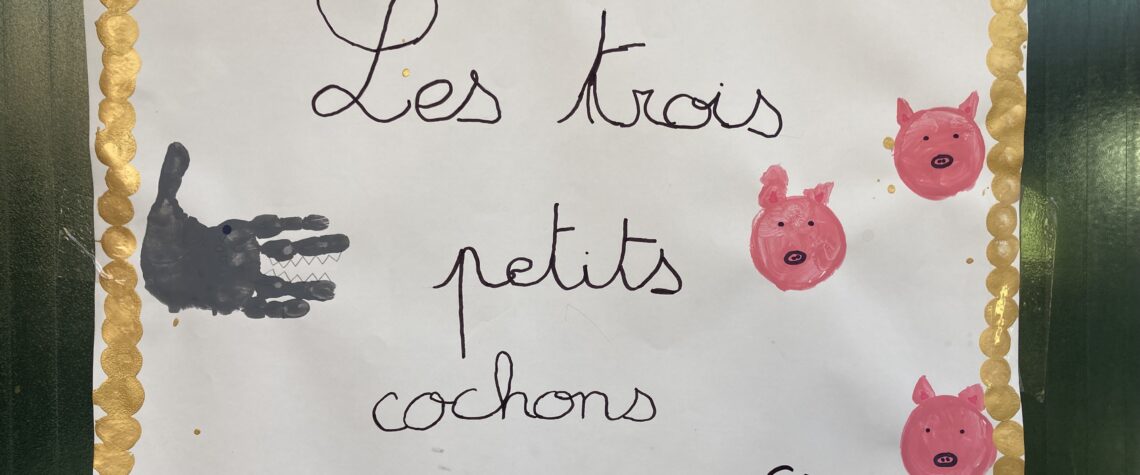 Les trois
petits
cochons